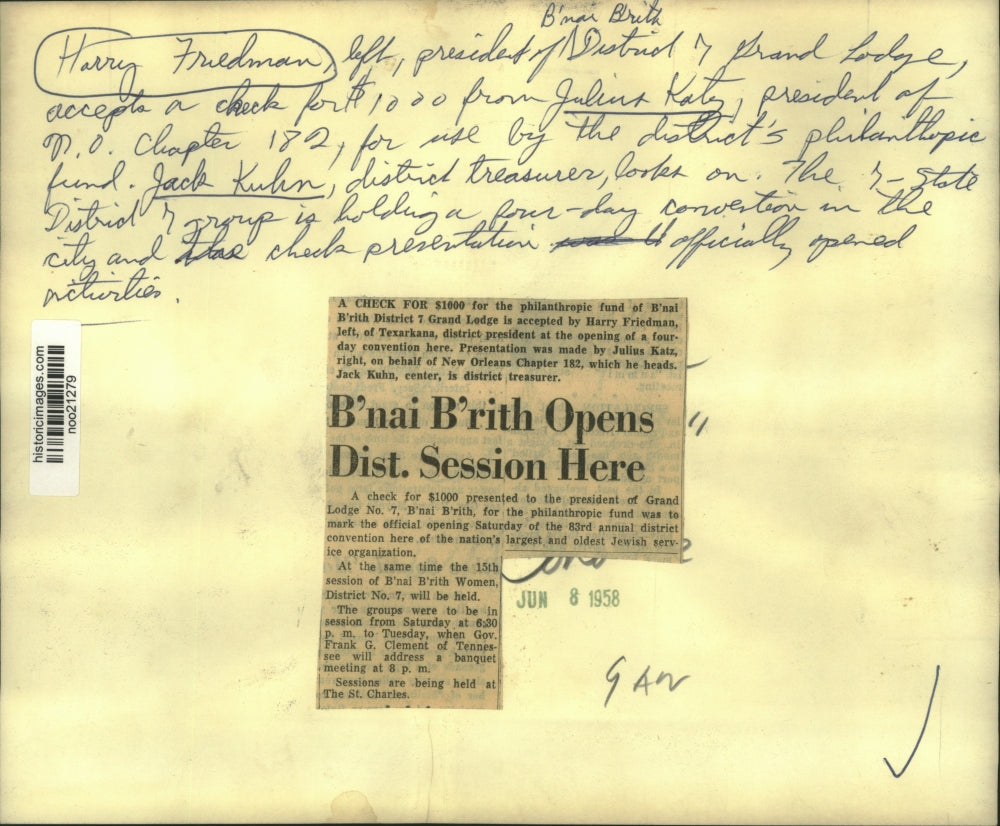 B'nai B'rith
Harry Friedman, left, president of District 7 Grand Lodge,
accepts a check for $1000 from Julius Katz, president of
N.O. Chapter 182, for use by the district's philanthropic
fund. Jack Kuhn, district treasurer, looks on. The 7-State
District 7 group is holding a four-day convention in the
city and the check presentation officially opened
activities.
A CHECK FOR $1000 for the philanthropic fund of B'nai
B'rith District 7 Grand Lodge is accepted by Harry Friedman,
left, of Texarkana, district president at the opening of a four-
day convention here. Presentation was made by Julius Katz,
right, on behalf of New Orleans Chapter 182, which he heads.
Jack Kuhn, center, is district treasurer.
B'nai B'rith Opens
Dist. Session Here
A check for $1000 presented to the president of Grand
Lodge No. 7, B'nai B'rith, for the philanthropic fund was to
mark the official opening Saturday of the 83rd annual district
convention here of the nation's largest and oldest Jewish serv-
ice organization.
At the same time the 15th
session of B'nai B'rith Women,
District No. 7, will be held.
The groups were to be in
session from Saturday at 6:30
p. m. to Tuesday, when Gov.
Frank G. Clement of Tennes-
see will address a banquet
meeting at 8 p. m.
Sessions are being held at
The St. Charles.
JUN 8 1958
historicimages.com
noo21279